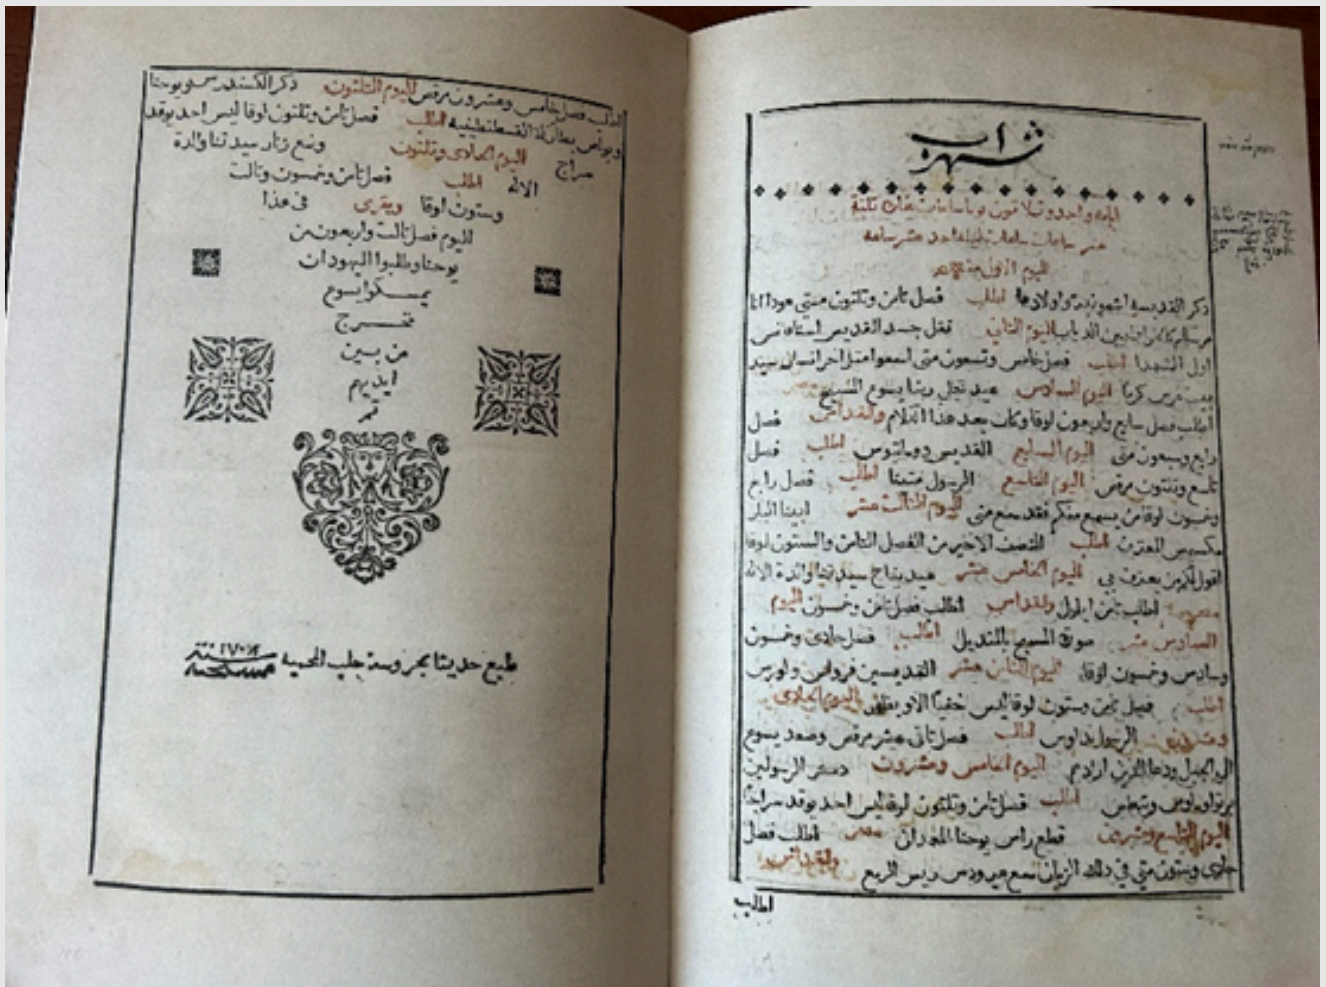 شهر اب
ايامه واحد وثلاثون يوماً ساعات نهاره ثلثة
عشر ساعات ساعات ليله احد عشر ساعه
اليوم الاول منه
ذكر القديسه اشمونيت واولادها اطلب فصل ثامن وثلثون متى هودا انا
مرسلكم كالخراف بين الدياب اليوم الثاني نقل جسد القديس استافانس
اول الشهدا اطلب فصل خامس وتسعون متى اسمعوا مثل اخر انسان سيد
بيت غرس كرما اليوم السادس عيد تجلي ربنا يسوع المسيح سحر
اطلب فصل سابع واربعون لوقا وكان بعد هذا الكلام والقداس فصل
رابع وسبعون متى اليوم السابع القديس دوماتيوس اطلب فصل
تاسع وثلثون مرقس اليوم التاسع الرسول متيا اطلب فصل رابع
وخمسون لوقا من يسمع منكم فقد سمع مني اليوم الثالث عشر ابينا البار
مكسيمس المعترف اطلب النصف الاخير من الفصل الثامن والستون لوقا
اقول لكم من يعترف بي اليوم الخامس عشر عيد نياح سيدتنا والدة الاله
سحر اطلب ثامن ايلول ولقداس اطلب فصل ثامن وخمسون اليوم
السادس عشر صورة المسيح بالمنديل اطلب فصل حادي وخمسون
وسادس وخمسون لوقا اليوم الثامن عشر القديسين فرولس ولورس
اطلب فصل ثامن وستون لوقا ليس خفياً الا ويظهر اليوم الحادي
وعشرون الرسول تداوس اطلب فصل ثاني عشر مرقس وصعد يسوع
الى الجبل ودعا الذين ارادهم اليوم الخامس وعشرون دستر الرسولين
برتولوماوس وتيطس اطلب فصل ثامن وثلثون لوقا ليس احد يوقد سراجاً
اليوم التاسع وعشرون قطع راس يوحنا المعمدان سحر اطلب فصل
حادي وستون متى في ذلك الزمان سمع هيرودس رييس الربع ولقداس
اطلب
اطلب فصل خامس وعشرون مرقص اليوم الثلثون ذكر الكسندرس ويوحنا
وبولس بطاركة القسطنطينيه اطلب فصل ثامن وثلثون لوقا ليس احد يوقد
سراج اليوم الحادي وثلثون وضع زنار سيدتنا والدة
الاله اطلب فصل ثامن وخمسون وثالث
وستون لوقا ويقرى في هذا
اليوم فصل ثالث واربعون من
يوحنا وطلبوا اليهود ان
يمسكوا يسوع
فخرج
من بين
ايديهم
تم
طبع حديثا بمحروسة حلب المحمية سنة ١٧٠٦ مسيحية